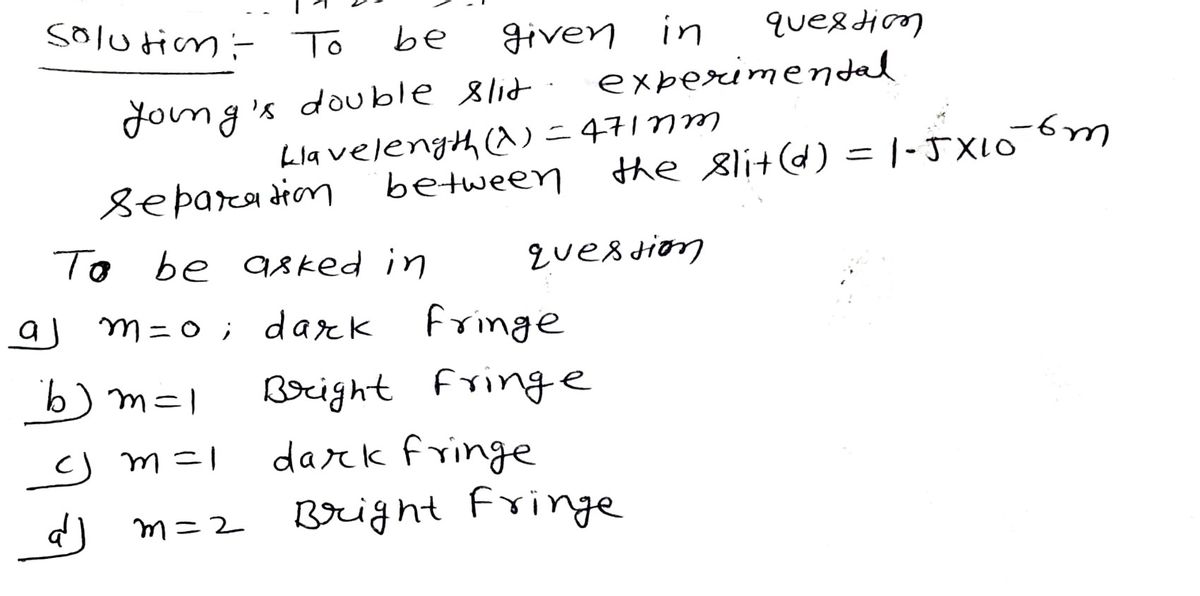 Solution:- To be given in question
Young's double slit experimental
Wavelength (λ) = 471 nm
Separation between the slit (d) = 1.5 X10⁻⁶ m
To be asked in question
a) m=0; dark fringe
b) m=1 Bright fringe
c) m=1 dark fringe
d) m=2 Bright fringe